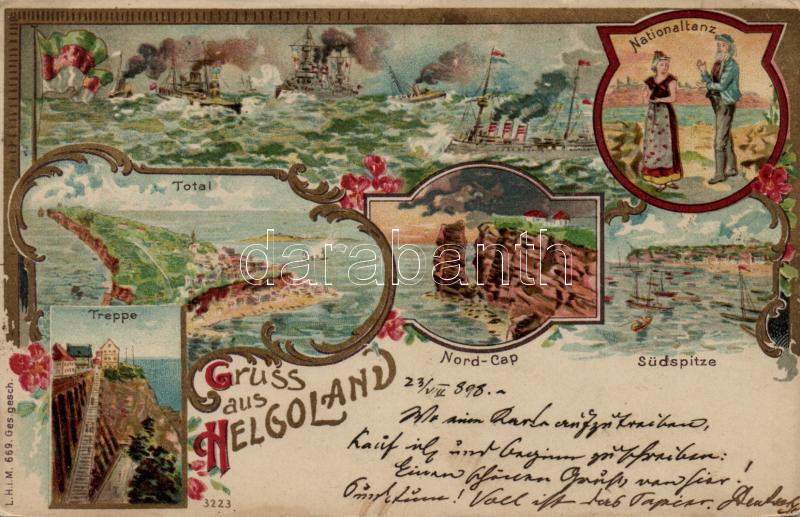 Nationaltanz
Total
darabanth
Treppe
Nord-Cap
Südspitze
Gruss
aus
HELGOLAND
23/VII 898.
Wo eine Karte aufzutreiben,
Kauf ich und beginn zu schreiben:
Einen schönen Gruß von hier!
Punctum! Voll ist das Papier.
L.H.i.M. 669. Ges. gesch.
3223